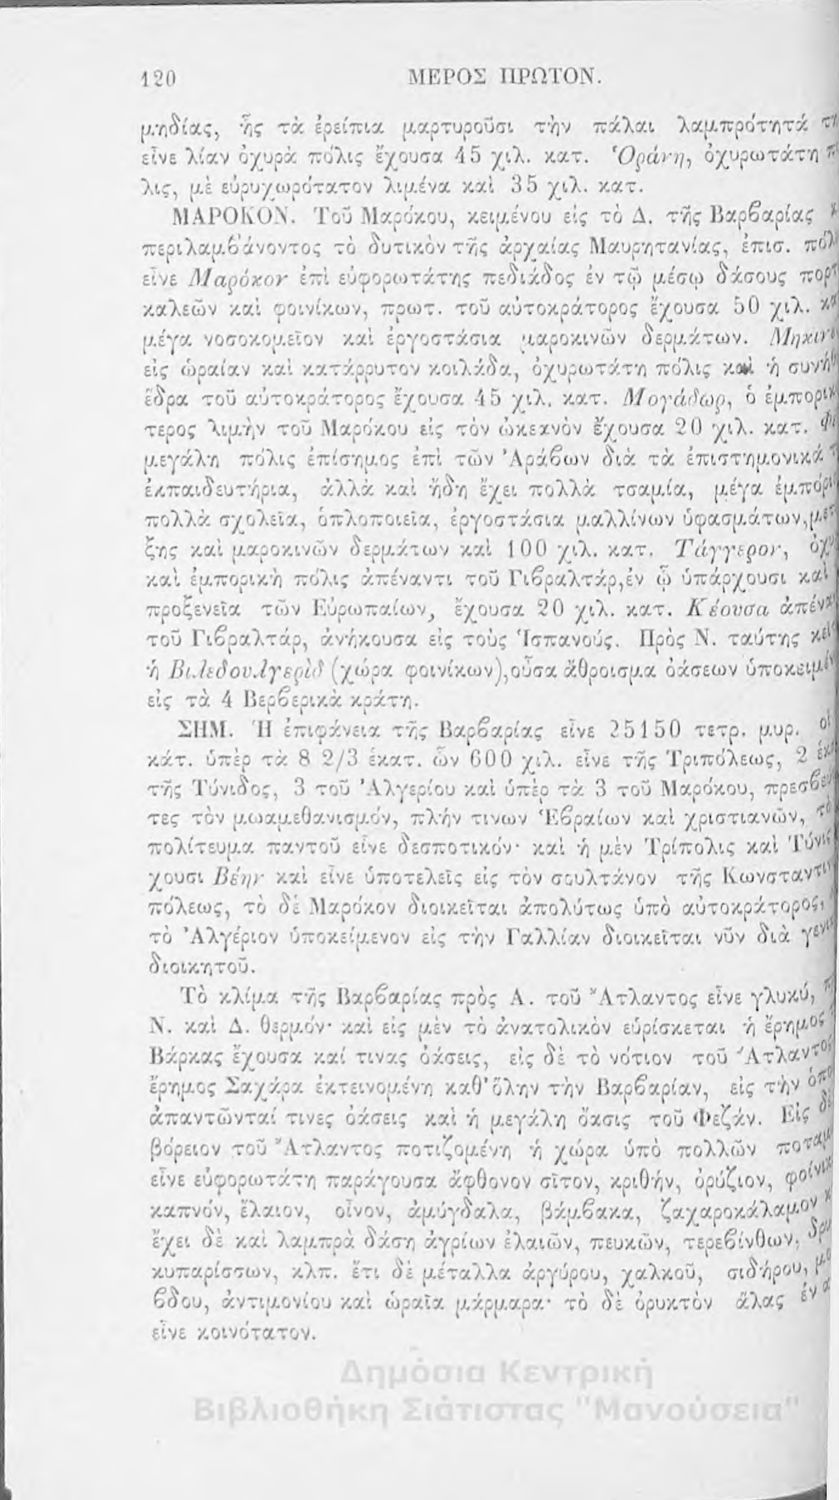 120 ΜΕΡΟΣ ΠΡΩΤΟΝ.
μηδίας, ἧς τὰ ἐρείπια μαρτυροῦσι τὴν πάλαι λαμπρότητά
εἶνε λίαν ὀχυρὰ πόλις ἔχουσα 45 χιλ. κατ. Ὁράνη, ὀχυρωτάτη
λις, μὲ εὐρυχωρότατον λιμένα καὶ 35 χιλ. κατ.
ΜΑΡΟΚΟΝ. Τοῦ Μαρόκου, κειμένου εἰς τὸ Δ. τῆς Βαρβαρίας
περιλαμβάνοντος τὸ δυτικὸν τῆς ἀρχαίας Μαυρητανίας, ἐπισ. πόλ
εἶνε Μαρόκον ἐπὶ εὐφορωτάτης πεδιάδος ἐν τῷ μέσῳ δάσους πορτ
καλεῶν καὶ φοινίκων, πρωτ. τοῦ αὐτοκράτορος ἔχουσα 50 χιλ.
μέγα νοσοκομεῖον καὶ ἐργοστάσια μαροκινῶν δερμάτων.
εἰς ὡραίαν καὶ κατάρρυτον κοιλάδα, ὀχυρωτάτη πόλις καὶ ἡ συνήθ
ἕδρα τοῦ αὐτοκράτορος ἔχουσα 45 χιλ. κατ. Μογάδωρ, ὁ ἐμπορικ
τερος λιμὴν τοῦ Μαρόκου εἰς τὸν ὠκεανὸν ἔχουσα 20 χιλ. κατ.
μεγάλη πόλις ἐπίσημος ἐπὶ τῶν Ἀράβων διὰ τὰ ἐπιστημονικὰ
ἐκπαιδευτήρια, ἀλλὰ καὶ ἤδη ἔχει πολλὰ τσαμία, μέγα ἐμπόρι
πολλὰ σχολεῖα, ὁπλοποιεῖα, ἐργοστάσια μαλλίνων ὑφασμάτων, με
ξης καὶ μαροκινῶν δερμάτων καὶ 100 χιλ. κατ. Τάγγερον, ὀχ
καὶ ἐμπορικὴ πόλις ἀπέναντι τοῦ Γιβραλτάρ, ἐν ᾧ ὑπάρχουσι καὶ
προξενεῖα τῶν Εὐρωπαίων, ἔχουσα 20 χιλ. κατ. Κέουσα ἀπέν
τοῦ Γιβραλτάρ, ἀνήκουσα εἰς τοὺς Ἱσπανούς. Πρὸς Ν. ταύτης κεῖ
ἡ Βιλεδουλγερὶδ (χώρα φοινίκων), οὖσα ἄθροισμα ὀάσεων ὑποκειμέν
εἰς τὰ 4 Βερβερικὰ κράτη.
ΣΗΜ. Ἡ ἐπιφάνεια τῆς Βαρβαρίας εἶνε 25150 τετρ. μυρ. οἱ
κάτ. ὑπὲρ τὰ 8 2/3 ἑκατ. ὧν 600 χιλ. εἶνε τῆς Τριπόλεως, 2 ἑκ
τῆς Τύνιδος, 3 τοῦ Ἀλγερίου καὶ ὑπὲρ τὰ 3 τοῦ Μαρόκου, πρεσβεύ
τες τὸν μωαμεθανισμόν, πλήν τινων Ἑβραίων καὶ χριστιανῶν, τὸ
πολίτευμα παντοῦ εἶνε δεσποτικόν· καὶ ἡ μὲν Τρίπολις καὶ Τύνις
χουσι Βέην καὶ εἶνε ὑποτελεῖς εἰς τὸν σουλτάνον τῆς Κωνσταντι
πόλεως, τὸ δὲ Μαρόκον διοικεῖται ἀπολύτως ὑπὸ αὐτοκράτορος,
τὸ Ἀλγέριον ὑποκείμενον εἰς τὴν Γαλλίαν διοικεῖται νῦν διὰ γενι
διοικητοῦ.
Τὸ κλίμα τῆς Βαρβαρίας πρὸς Α. τοῦ Ἄτλαντος εἶνε γλυκύ,
Ν. καὶ Δ. θερμόν· καὶ εἰς μὲν τὸ ἀνατολικὸν εὑρίσκεται ἡ ἔρημος
Βάρκας ἔχουσα καί τινας ὀάσεις, εἰς δὲ τὸ νότιον τοῦ Ἄτλαντος
ἔρημος Σαχάρα ἐκτεινομένη καθ' ὅλην τὴν Βαρβαρίαν, εἰς τὴν ὁπο
ἀπαντῶνταί τινες ὀάσεις καὶ ἡ μεγάλη ὄασις τοῦ Φεζάν. Εἰς δὲ
βόρειον τοῦ Ἄτλαντος ποτιζομένη ἡ χώρα ὑπὸ πολλῶν ποταμ
εἶνε εὐφορωτάτη παράγουσα ἄφθονον σῖτον, κριθήν, ὀρύζιον, φοίνικ
καπνόν, ἔλαιον, οἶνον, ἀμύγδαλα, βάμβακα, ζαχαροκάλαμον
ἔχει δὲ καὶ λαμπρὰ δάση ἀγρίων ἐλαιῶν, πευκῶν, τερεβίνθων, δρυ
κυπαρίσσων, κλπ. ἔτι δὲ μέταλλα ἀργύρου, χαλκοῦ, σιδήρου, μο
βδου, ἀντιμονίου καὶ ὡραῖα μάρμαρα· τὸ δὲ ὀρυκτὸν ἅλας ἐν
εἶνε κοινότατον.
Δημόσια Κεντρική
Βιβλιοθήκη Σιάτιστας "Μανούσεια"